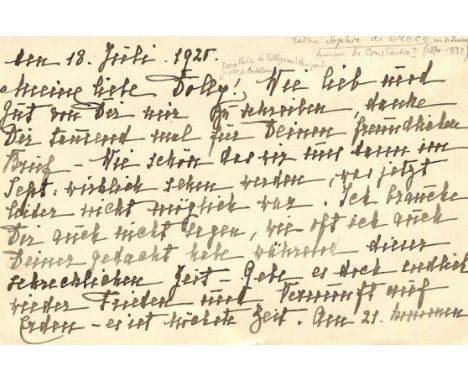 reine Sophie de GRECE
femme de Constantin I (1870-1932)
den 18. Juli 1920.
Dorothée de Talleyrand-Périgord
Meine liebe Dolly! Wie lieb und
gut von Dir mir zu schreiben, danke
Dir tausend mal für Deinen freundlichen
Brief – Wie schön das wir uns dann im
Sept. wirklich sehen werden, was jetzt
leider nicht möglich war. Ich brauche
Dir auch nicht sagen, wie oft ich auch
Deiner gedacht habe während dieser
schrecklichen Zeit – Gebe es doch endlich
wieder Frieden und Vernunft auf
Erden – es ist höchste Zeit. Am 21. kommen